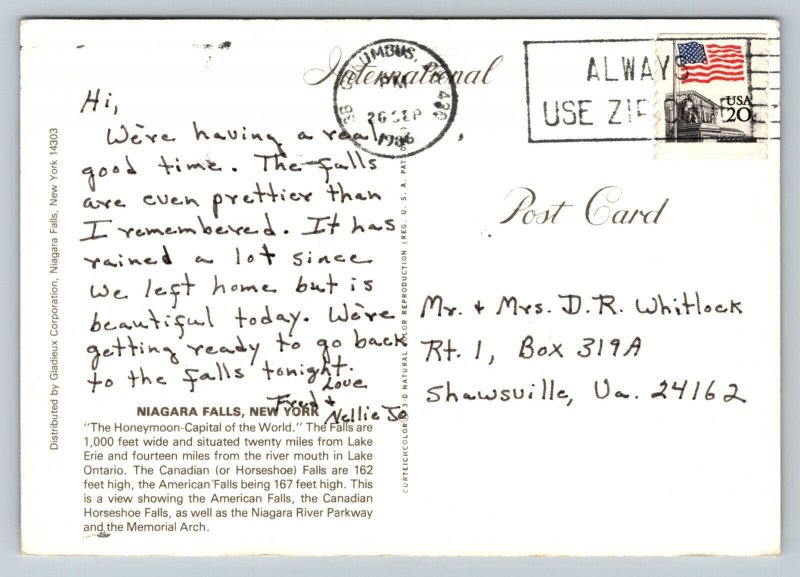 International
COLUMBUS,
430
PM
26 SEP
1986
ALWAYS
USE ZIP
USA
20c
Hi,
We're having a real
good time. The falls
are even prettier than
I remembered. It has
rained a lot since
We left home but is
beautiful today. We're
getting ready to go back
to the falls tonight.
Love
Fred +
Nellie Jo
NIAGARA FALLS, NEW YORK
"The Honeymoon-Capital of the World." The Falls are
1,000 feet wide and situated twenty miles from Lake
Erie and fourteen miles from the river mouth in Lake
Ontario. The Canadian (or Horseshoe) Falls are 162
feet high, the American Falls being 167 feet high. This
is a view showing the American Falls, the Canadian
Horseshoe Falls, as well as the Niagara River Parkway
and the Memorial Arch.
Distributed by Gladieux Corporation, Niagara Falls, New York 14303
CURTEICHCOLOR® 3-D NATURAL COLOR REPRODUCTION (REG. U.S.A. PAT
Post Card
Mr. + Mrs. D.R. Whitlock
Rt. 1, Box 319A
Shawsville, Va. 24162